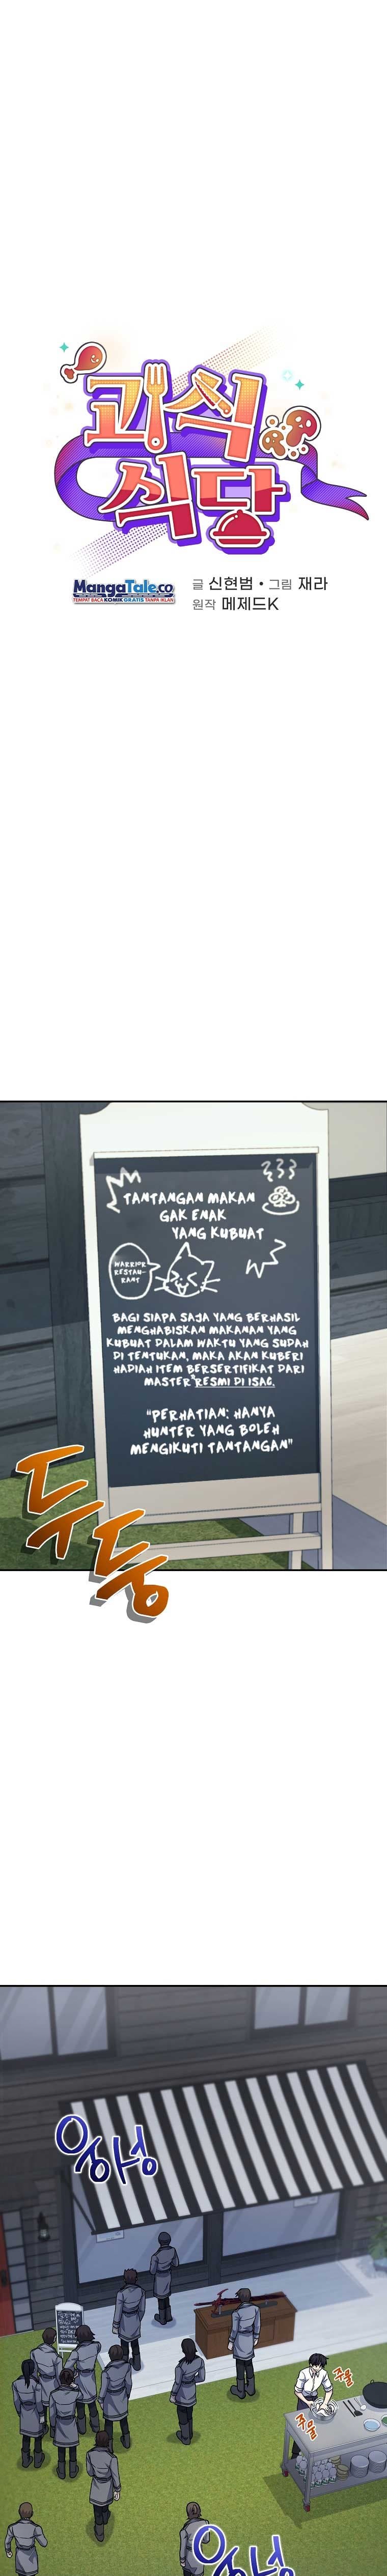 괴식
식당
글 신현범 • 그림 재라
원작 메제드K
MangaTale.co
TEMPAT BACA KOMIK GRATIS TANPA IKLAN
TANTANGAN MAKAN
GAK ENAK
YANG KUBUAT
WARRIOR
RESTAU-
RANT
BAGI SIAPA SAJA YANG BERHASIL
MENGHABISKAN MAKANAN YANG
KUBUAT DALAM WAKTU YANG SUDAH
DI TENTUKAN, MAKA AKAN KUBERI
HADIAH ITEM BERSERTIFIKAT DARI
MASTER RESMI DI ISAC.
"PERHATIAN: HANYA
HUNTER YANG BOLEH
MENGIKUTI TANTANGAN"
두둥
웅성
주물
주물
웅성